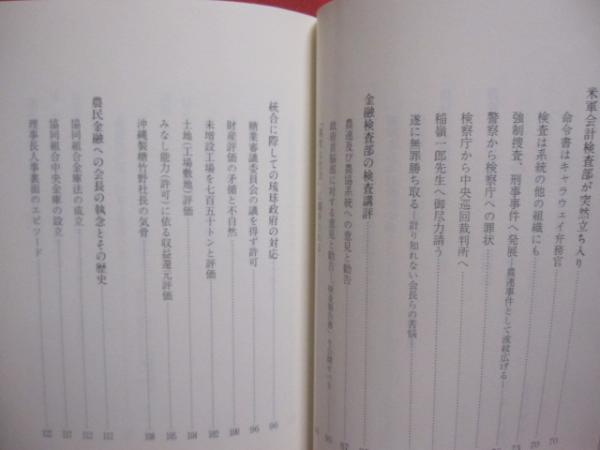 米軍会計検査部が突然立ち入り
命令書はキャラウェイ弁務官 70
検査は系統の他の組織にも 70
強制捜査、刑事事件へ発展―農連事件として波紋広げる― 73
警察から検察庁への罪状
検察庁から中央巡回裁判所へ
稲嶺一郎先生へ御尽力請う
遂に無罪勝ち取る―計り知れない会長らの苦悩
金融検査部の検査講評
農連及び農協系統への意見と勧告
政府首脳部に対する意見と勧告
統合に際しての琉球政府の対応 96
糖業審議委員会の議を得ず許可 96
財産評価の矛盾と不自然 100
未増設工場を七百五十トンと評価 102
土地(工場敷地)評価 104
みなし能力(許可)に依る収益還元評価 105
沖縄製糖竹野社長の気骨 108
農民金融への会長の執念とその歴史 112
協同組合金庫法の成立 112
協同組合中央金庫の設立 117
理事長人事裏面のエピソード 122